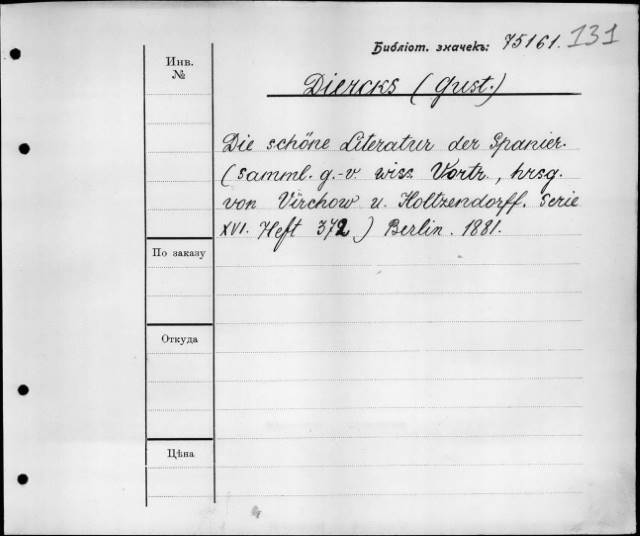 Библіот. значекъ: 75161. 131
Инв.
№
Diercks (Gust.)
Die schöne Literatur der Spanier.
(Samml. g.-v. wiss Vortr., hrsg.
von Virchow u. Holtzendorff. Serie
XVI. Heft 372) Berlin. 1881.
По заказу
Откуда
Цѣна